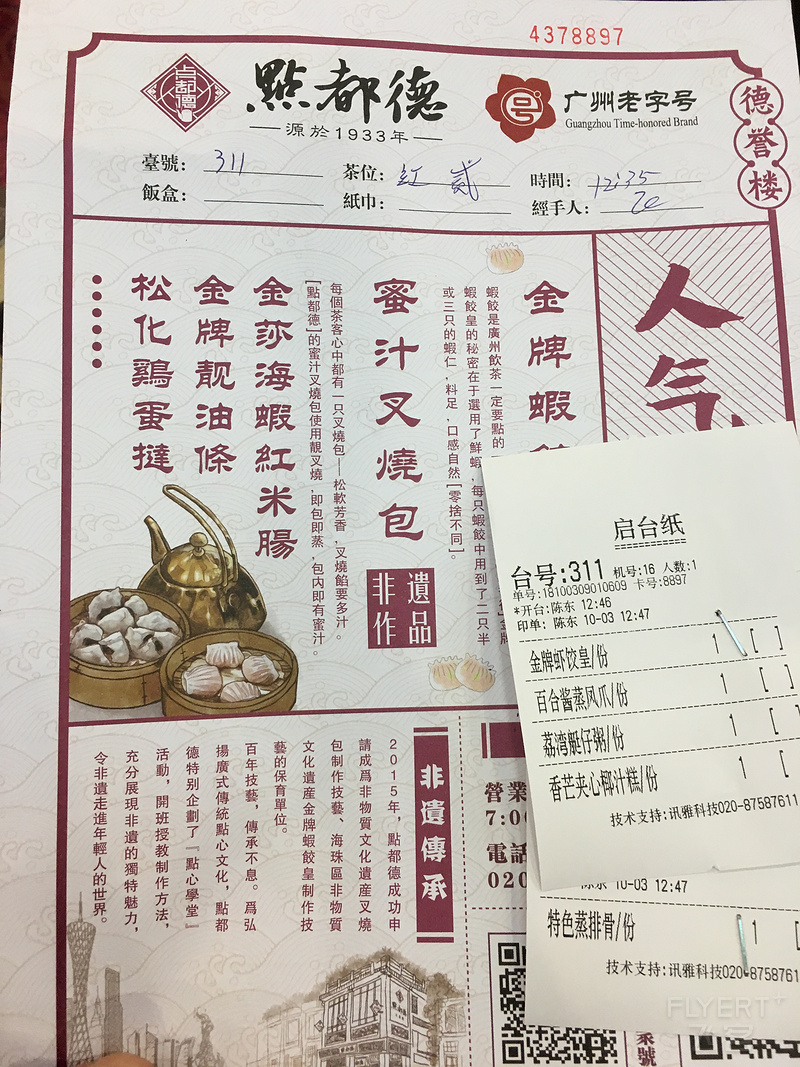 4378897
點都德
源於1933年
点都德
号
广州老字号
Guangzhou Time-honored Brand
德誉楼
臺號： 311
茶位： 红 贰
時間： 12:35
飯盒：
紙巾：
經手人：
人气
金牌蝦
蝦餃是廣州飲茶一定要點的
蝦餃皇的秘密在于選用了鮮蝦，每只蝦餃中用到了二只半
或三只的蝦仁，料足，口感自然[零捨不同]。
蜜汁叉燒包
非遺
作品
每個茶客心中都有一只叉燒包——松軟芳香，叉燒餡要多汁。
[點都德]的蜜汁叉燒包使用靚叉燒，即包即蒸，包内即有蜜汁。
金莎海蝦紅米腸
金牌靓油條
松化鷄蛋撻
非遺傳承
2015年，點都德成功申
請成爲非物質文化遺産叉燒
包制作技藝、海珠區非物質
文化遺産金牌蝦餃皇制作技
藝的保育單位。
百年技藝，傳承不息。爲弘
揚廣式傳統點心文化，點都
德特别企劃了『點心學堂』
活動，開班授教制作方法，
充分展現非遺的獨特魅力，
令非遺走進年輕人的世界。
營業
7:00
電話
020
點都德
启台纸
台号:311 机号:16 人数:1
单号:18100309010609 卡号:8897
*开台: 陈东 12:46
印单: 陈东 10-03 12:47
金牌虾饺皇/份 1 [ ]
百台酱蒸凤爪/份 1 [ ]
荔湾艇仔粥/份 1 [ ]
香芒夹心椰汁糕/份 1 [
技术支持:讯雅科技020-87587611
陈东 10-03 12:47
特色蒸排骨/份 1 [
技术支持:讯雅科技020-8758761
家號
FLYERT